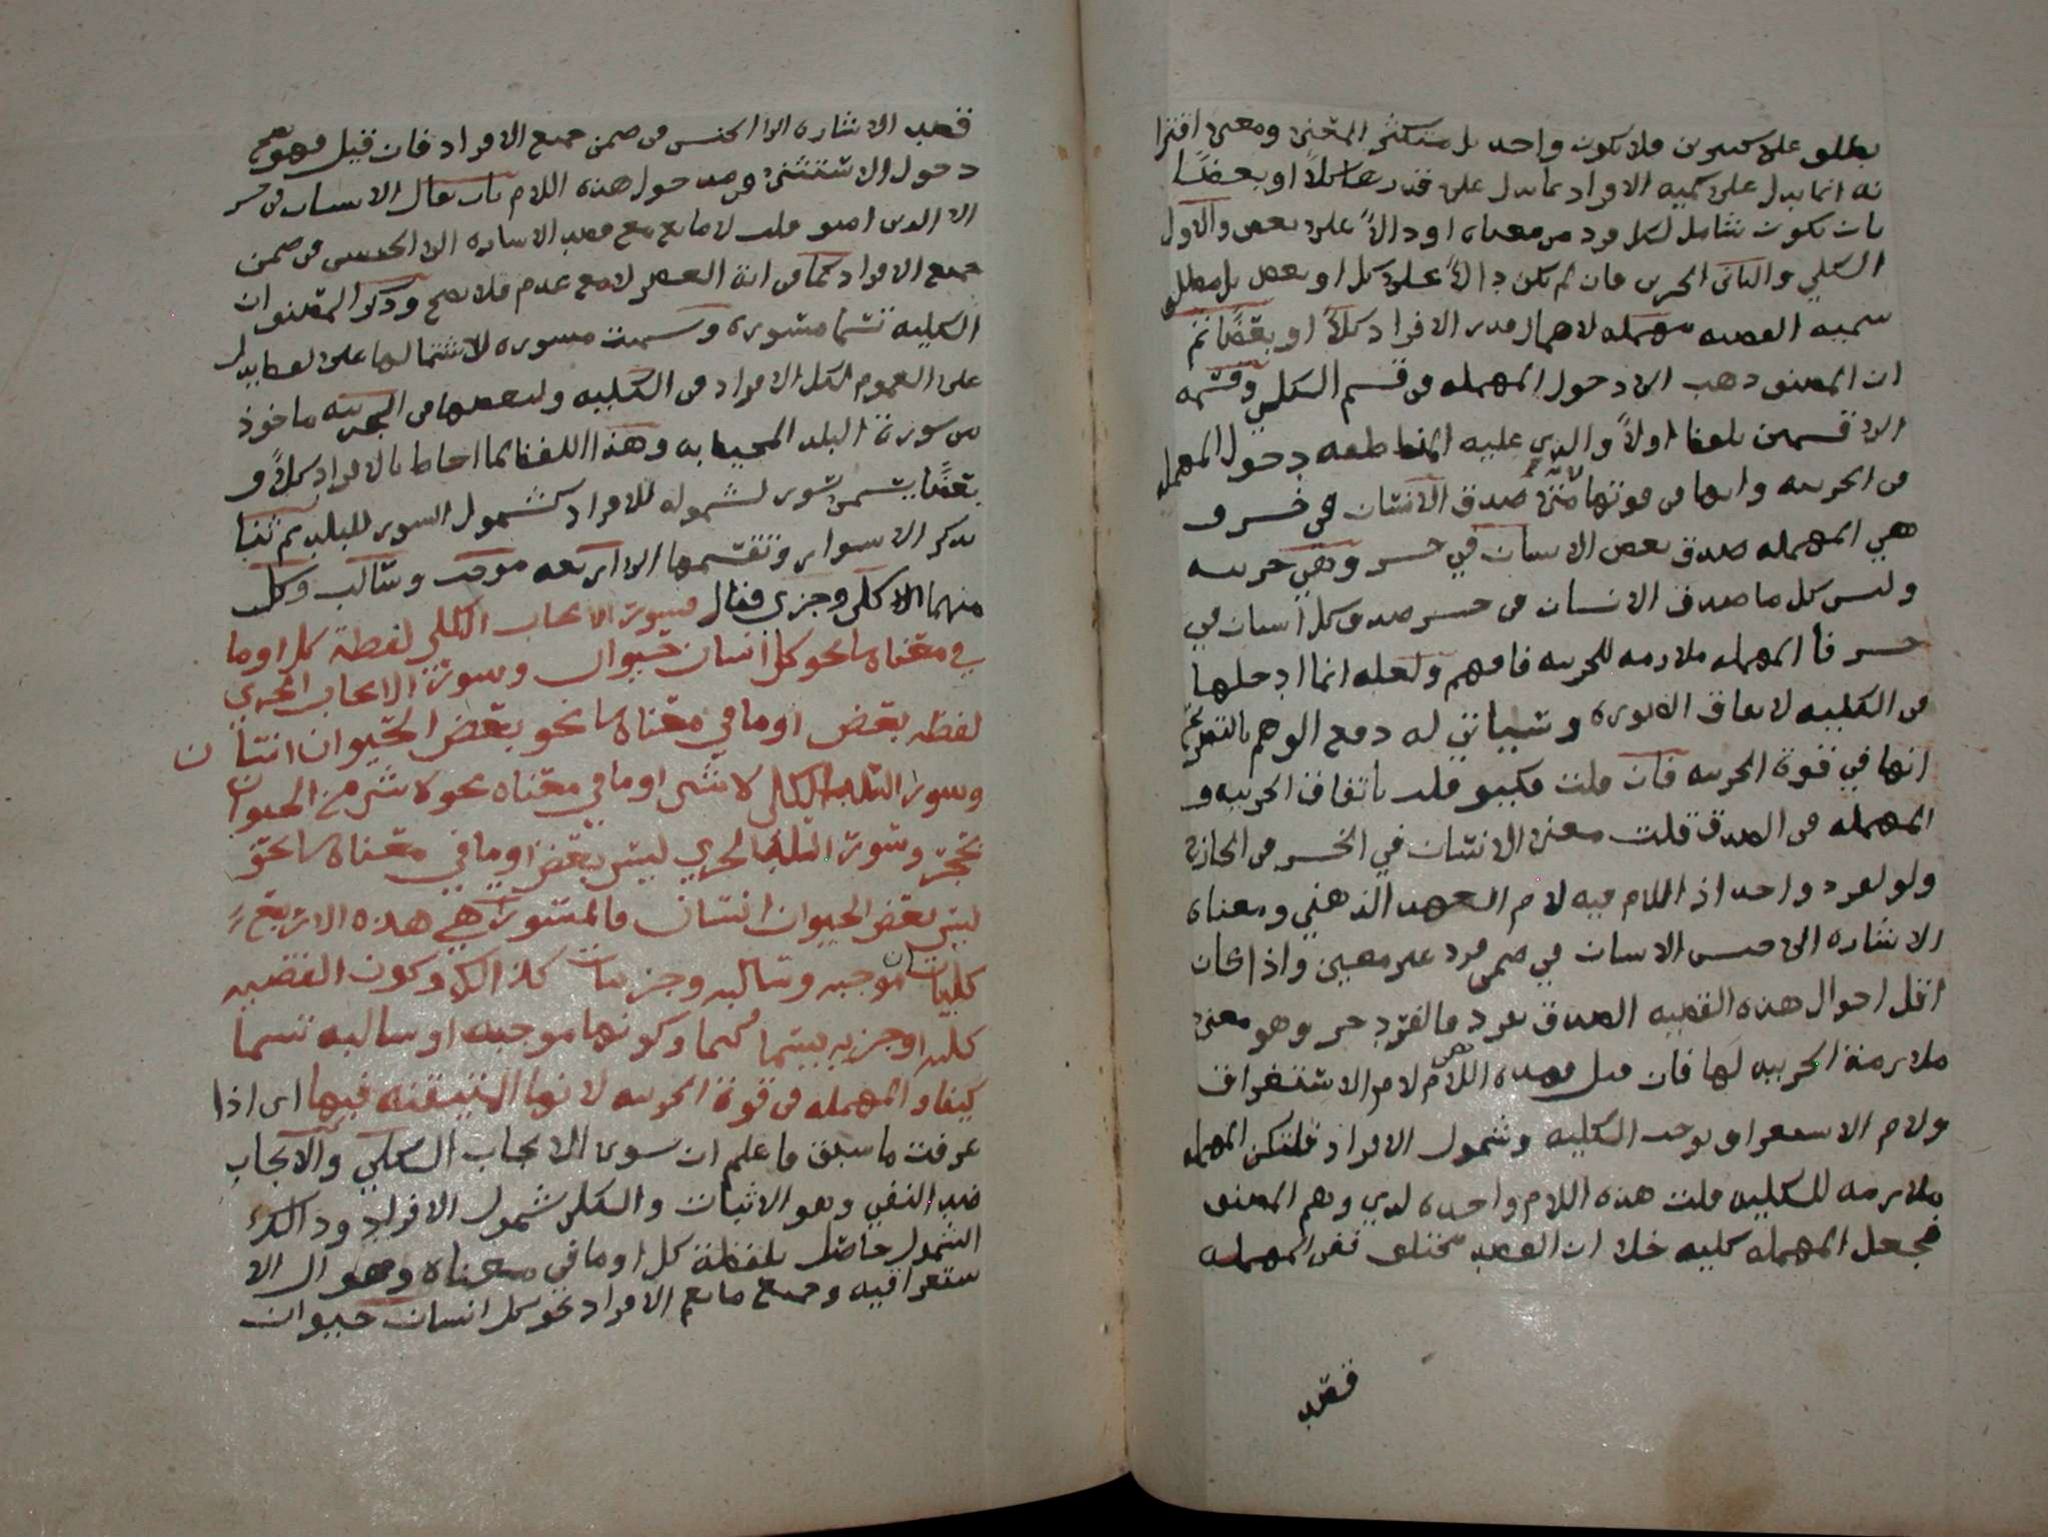 يطلق على كثيرين فلا يكون واحد بل متكثر المعنى ومعنى اقترا
نه انما يدل على كميه الافراد بما يدل على قدرها كلاً او بعضًا
بان يكون شامل لكل فرد من معناه او دالاً على بعض والاول
الكلي والثاني الجزى فان لم يكن دالاً على كل او بعض بل مطلق
سميه القضيه مهمله لاهمال قدر الافراد كلاً او بعضًا ثم
ان المصنف ذهب الى دخول المهمله في قسم الكلي وقسمه
الى قسمين بلفظ اولاً والذي عليه المناطقه دخول المهمله
في الجزييه وانها في قوتها لانه متى صدق الانسان في خسر و
هي المهمله صدق بعض الانسان في خسر وهي جزييه
وليس كل ما صدق الانسان في خسر صدق كل انسان في
خسر فا المهمله ملازمه للجزييه فافهم ولعله انما ادخلها
في الكليه لاتفاق الصوره وسياتي له دفع الوهم بالتصريح
انها في قوة الجزييه فان قلت فكيف قلت باتفاق الجزييه و
المهمله في الصدق قلت معنى الانسان في الخسر في الخارج
ولو لفرد واحد اذ اللام فيه لام العهد الذهني ومعناه
الاشاره الى جنس الانسان في ضمن فرد غير معين واذا كان
اقل احوال هذه القضيه الصدق بفرد فالفرد جز وهو معنى
ملازمة الجزييه لها فان قيل فهذه اللام هي لام الاستغراق
ولام الاستغراق توجب الكليه وشمول الافراد فلتكن المهمله
ملازمه للكليه قلت هذه اللام واحده لدي وهم المصنف
فجعل المهمله كليه خلا ان القصد مختلف ففي المهمله
فقصد
قصد الاشاره الى الجنس في ضمن جميع الافراد فان قيل فهو يصح
دخول الاستثنى في مدخول هذه اللام بان يقال الانسان في خسر
الا الذين امنوا قلت لا مانع مع قصد الاشاره الى الجنس في ضمن
جميع الافراد كما في اية العصر لا مع عدم فلا يصح وذكر المصنف ان
الكليه تسما مسوره وسميت مسوره لاشتمالها على لفظ يدل
على العموم لكل الافراد في الكليه ولبعضها في الجزييه ماخوذ
من سورة البلد المحيط به وهذا اللفظ لما احاط بالافراد كلاً و
بعضًا يسمى سور لشموله للافراد كشمول السور للبلد ثم ثنا
بذكر الاسوار وتقسمها الى اربعه موجب وسالب وكل
منهما الا كلى وجزى فقال فسور الايجاب الكلي لفظة كل او ما
في معناها نحو كل انسان حيوان وسور الايجاب الجزي
لفظه بعض او ما في معناها نحو بعض الحيوان انسان
وسور السلب الكلى لا شى او ما في معناه نحو لا شى من الحيوان
بحجر وسور السلب الجزي ليس بعض او ما في معناها نحو
ليس بعض الحيوان انسان فالمسورات هي هذه الاربع
كليتان موجبه وسالبه وجزيتان كذالك وكون القضيه
كليه او جزيه يسما كما وكونها موجبه او سالبه تسما
كيفا والمهمله في قوة الجزييه لانها المتيقنه فيها اى اذا
عرفت ما سبق فاعلم ان سور الايجاب الكلي والايجاب
ضد النفي وهو الاثبات والكلى شمول الافراد وذالك
الشمول حاصل بلفظة كل او ما في معناه وهو ال الا
ستغراقيه وجميع مايعم الافراد نحو كل انسان حيوان